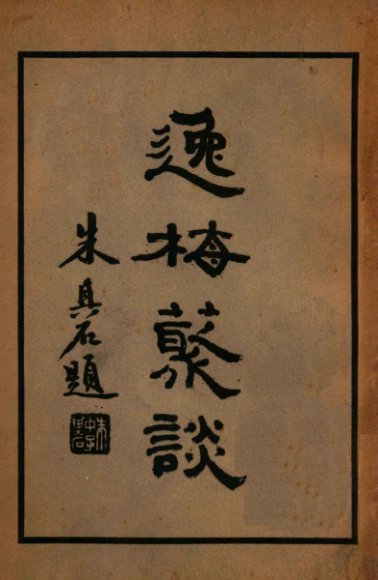 逸梅藂談
朱其石題